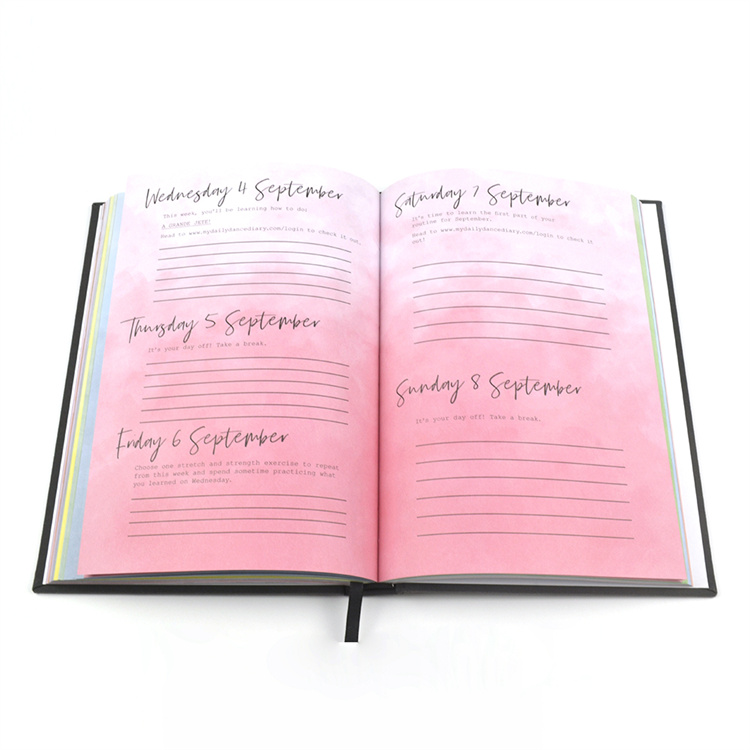 Wednesday 4 September
This week, you'll be learning how to do:
A GRANDE JETE!
Head to www.mydailydancediary.com/login to check it out.
Thursday 5 September
It's your day off! Take a break.
Friday 6 September
Choose one stretch and strength exercise to repeat
from this week and spend sometime practicing what
you learned on Wednesday.
Saturday 7 September
It's time to learn the first part of your
routine for September.
Head to www.mydailydancediary.com/login to check it
out!
Sunday 8 September
It's your day off! Take a break.